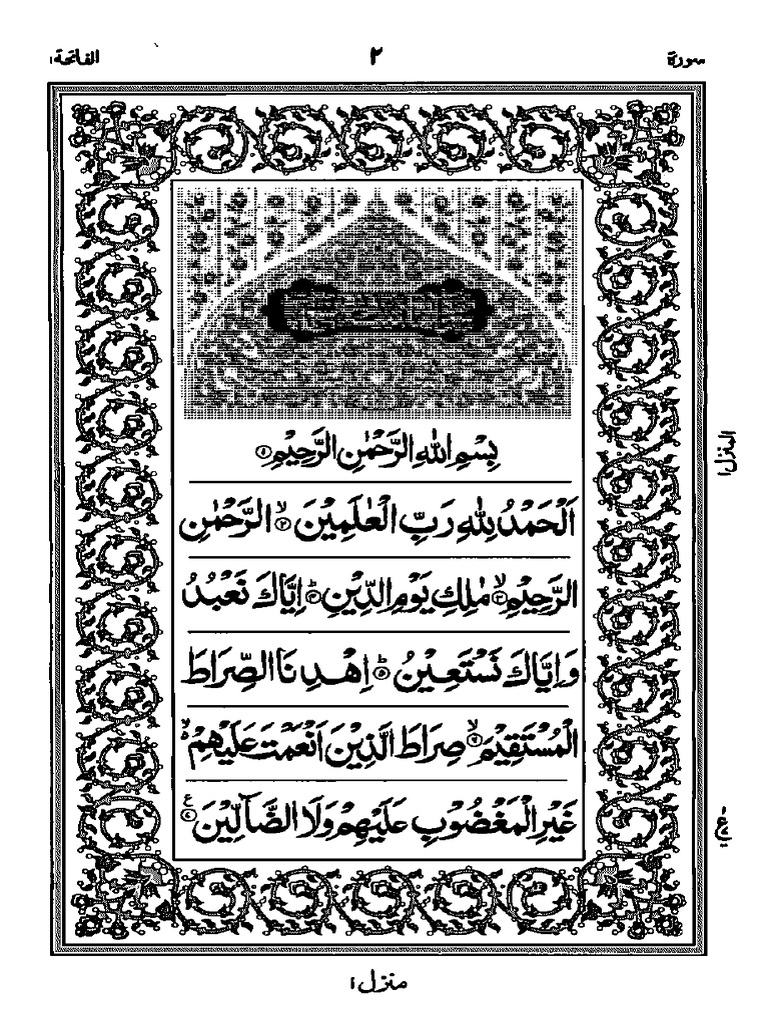 سورة ٢ الفاتحة ١
بِسْمِ اللهِ الرَّحْمٰنِ الرَّحِيْمِ ۝١
اَلْحَمْدُ لِلّٰهِ رَبِّ الْعٰلَمِيْنَ ۙ۝٢ الرَّحْمٰنِ
الرَّحِيْمِ ۙ۝٣ مٰلِكِ يَوْمِ الدِّيْنِ ؕ۝٤ اِيَّاكَ نَعْبُدُ
وَاِيَّاكَ نَسْتَعِيْنُ ؕ۝٥ اِهْدِنَا الصِّرَاطَ
الْمُسْتَقِيْمَ ۙ۝٦ صِرَاطَ الَّذِيْنَ اَنْعَمْتَ عَلَيْهِمْ ۙ
غَيْرِ الْمَغْضُوْبِ عَلَيْهِمْ وَلَا الضَّآلِّيْنَ ۝٧ ع
المنزل ١
منزل ١